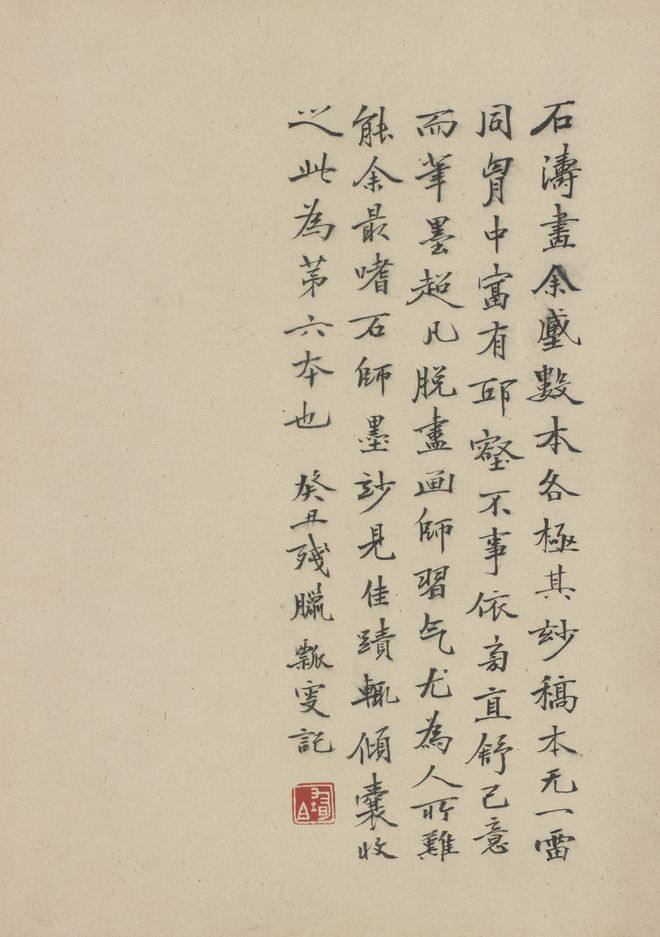 石濤畫余數本各極其玅稿本无一雷
同胷中富有邱壑不事依旁直舒己意
而筆墨超凡脫盡画師習气尤為人所難
能余最嗜石師墨玅見佳蹟輒傾囊收
之此為苐六本也 癸丑殘臘瓢叟記